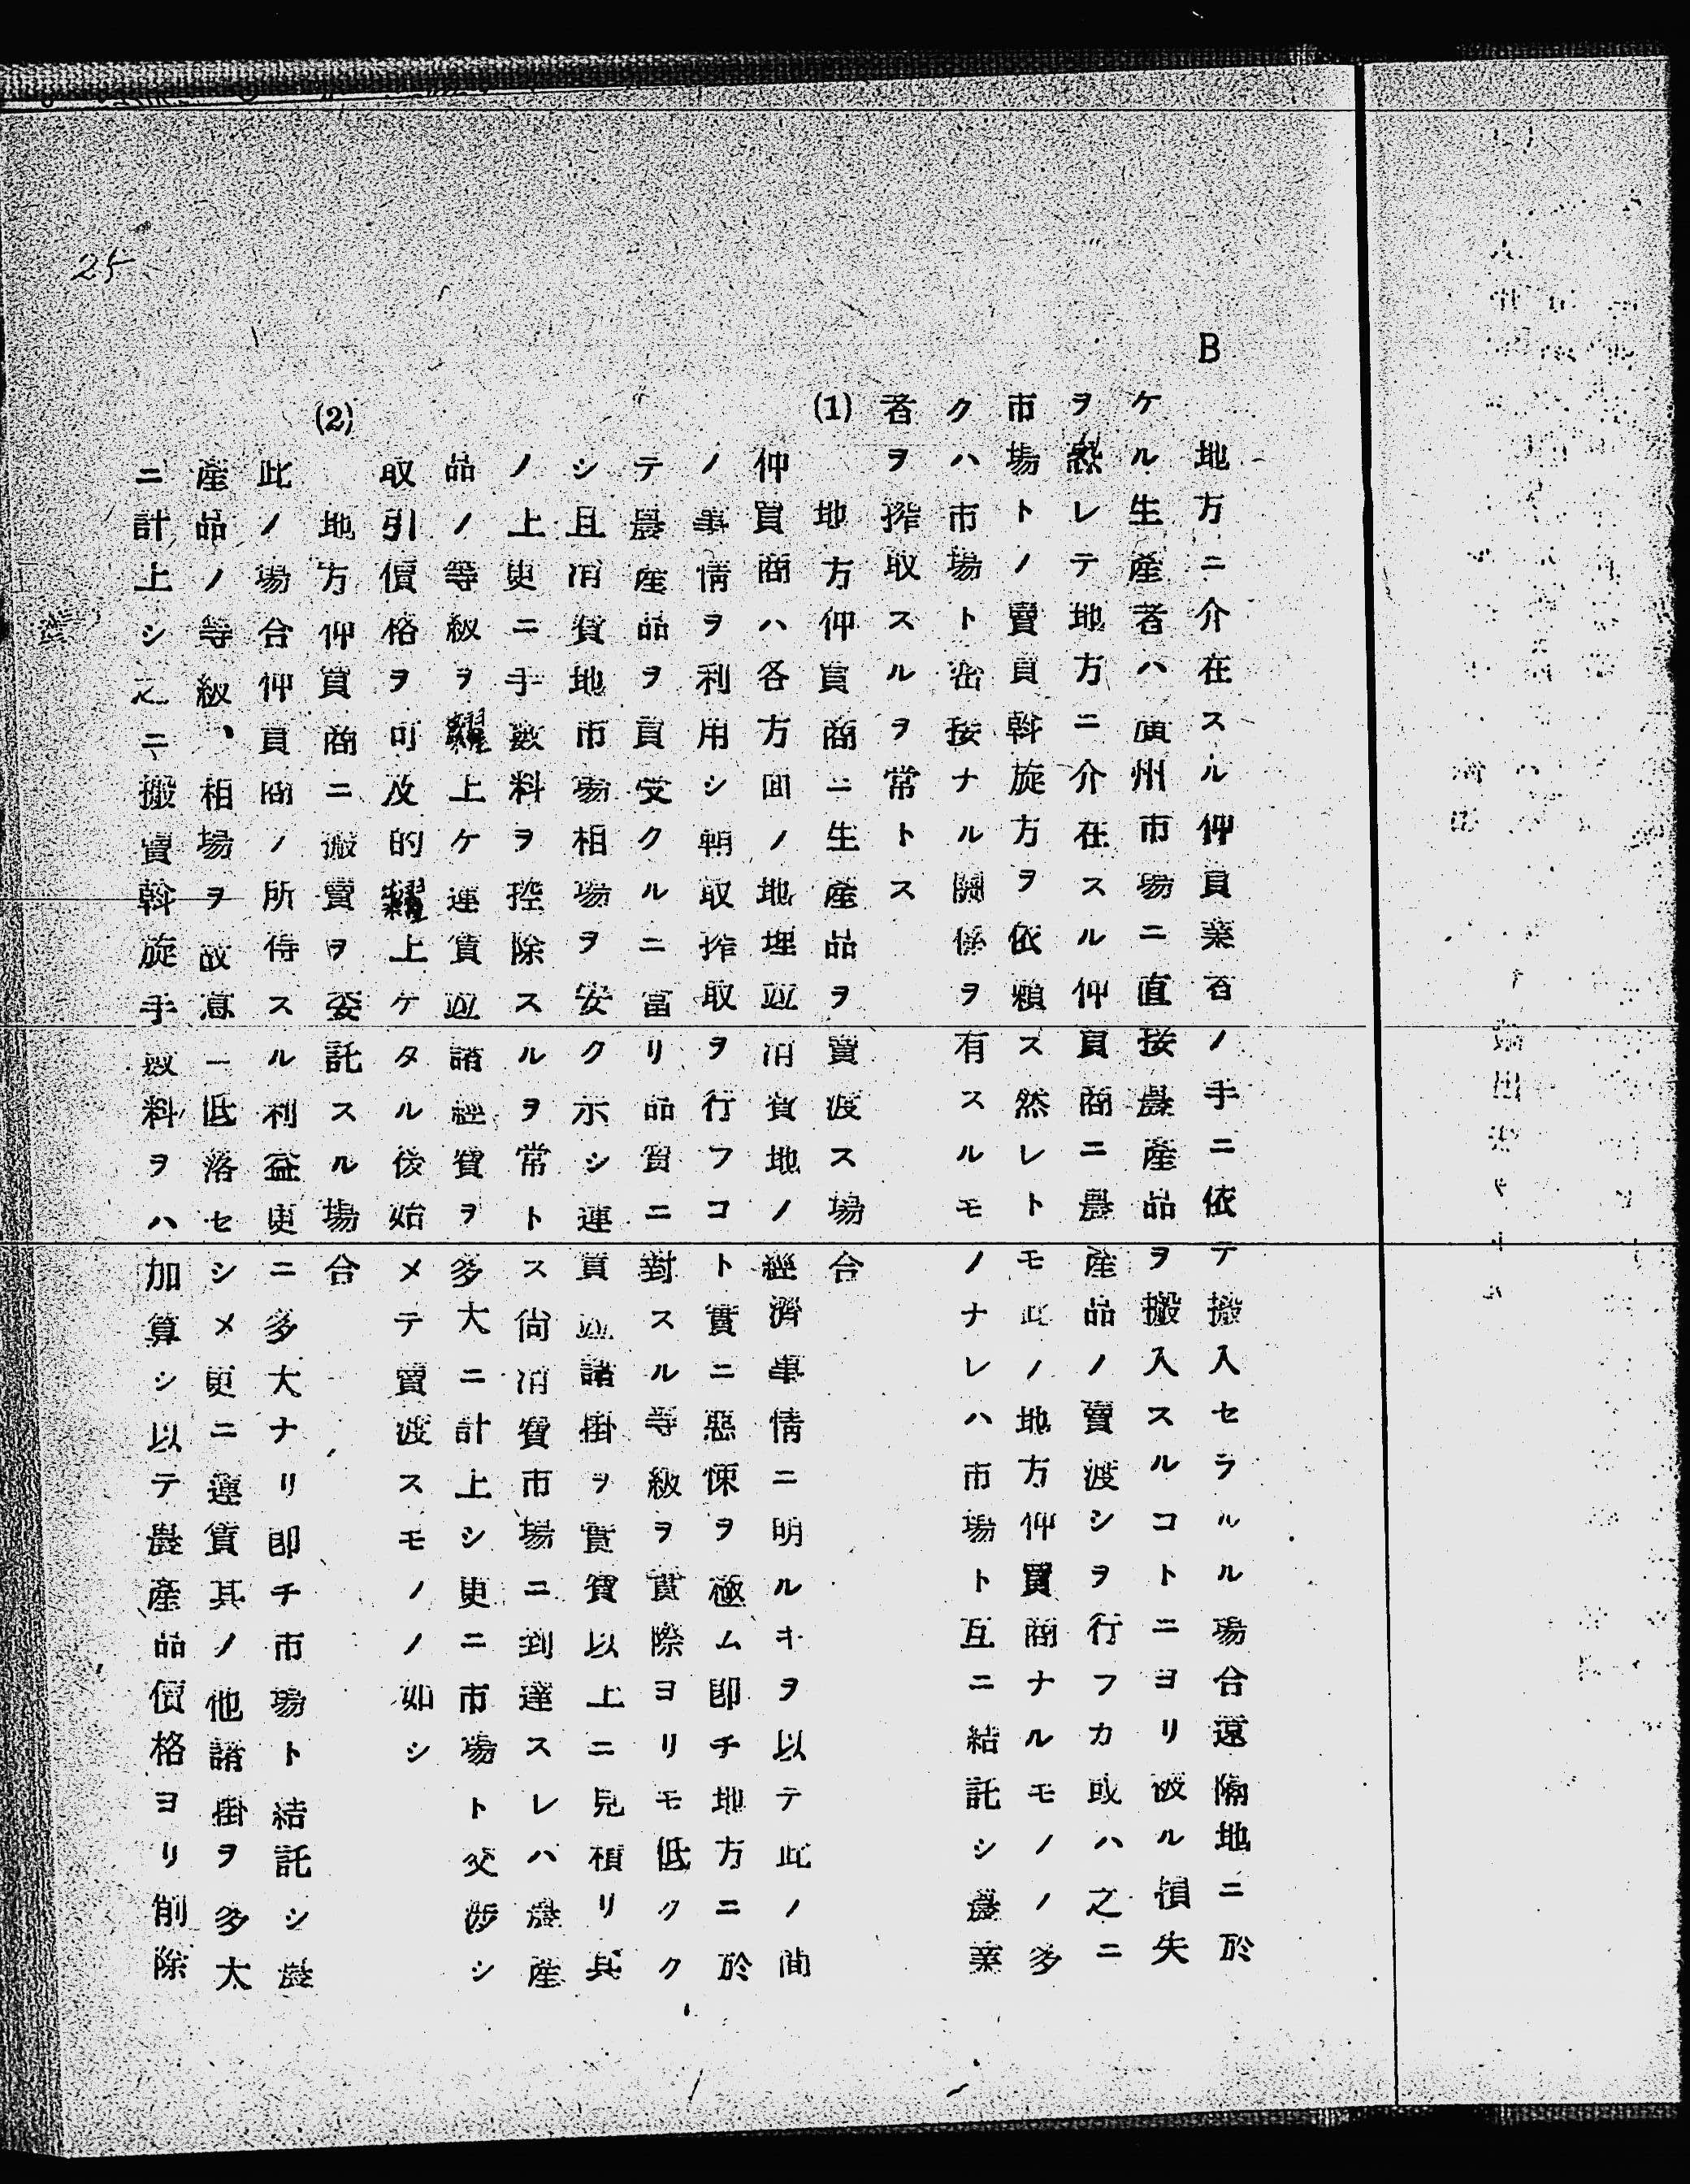 B 地方ニ介在スル仲買業者ノ手ニ依テ搬入セラルル場合遠隔地ニ於
ケル生産者ハ廣州市場ニ直接農産品ヲ搬入スルコトニヨリ被ル損失
ヲ然レテ地方ニ介在スル仲買商ニ農産品ノ賣渡シヲ行フカ或ハ之ニ
市場トノ賣買斡旋方ヲ依頼ス然レトモ此ノ地方仲買商ナルモノノ多
クハ市場ト密接ナル關係ヲ有スルモノナレハ市場ト互ニ結託シ農業
者ヲ搾取スルヲ常トス
(1) 地方仲買商ニ生産品ヲ賣渡ス場合
仲買商ハ各方面ノ地理竝消費地ノ經濟事情ニ明ルキヲ以テ此ノ間
ノ事情ヲ利用シ朝取搾取ヲ行フコト實ニ惡辣ヲ極ム卽チ地方ニ於
テ農産品ヲ買受クルニ當リ品質ニ對スル等級ヲ實際ヨリモ低クク
シ且消費地市場相場ヲ安ク示シ運賃竝諸掛ヲ實費以上ニ見積リ其
ノ上更ニ手數料ヲ控除スルヲ常トス尙消費市場ニ到達スレハ農産
品ノ等級ヲ糶上ケ運賃竝諸經費ヲ多大ニ計上シ更ニ市場ト交渉シ
取引價格ヲ可及的糶上ケタル後始メテ賣渡スモノノ如シ
(2) 地方仲買商ニ搬賣ヲ委託スル場合
此ノ場合仲買商ノ所得スル利益更ニ多大ナリ卽チ市場ト結託シ農
産品ノ等級、相場ヲ故意ニ低落セシメ更ニ運賃其ノ他諸掛ヲ多太
ニ計上シ之ニ搬賣斡旋手數料ヲハ加算シ以テ農産品價格ヨリ削除
25